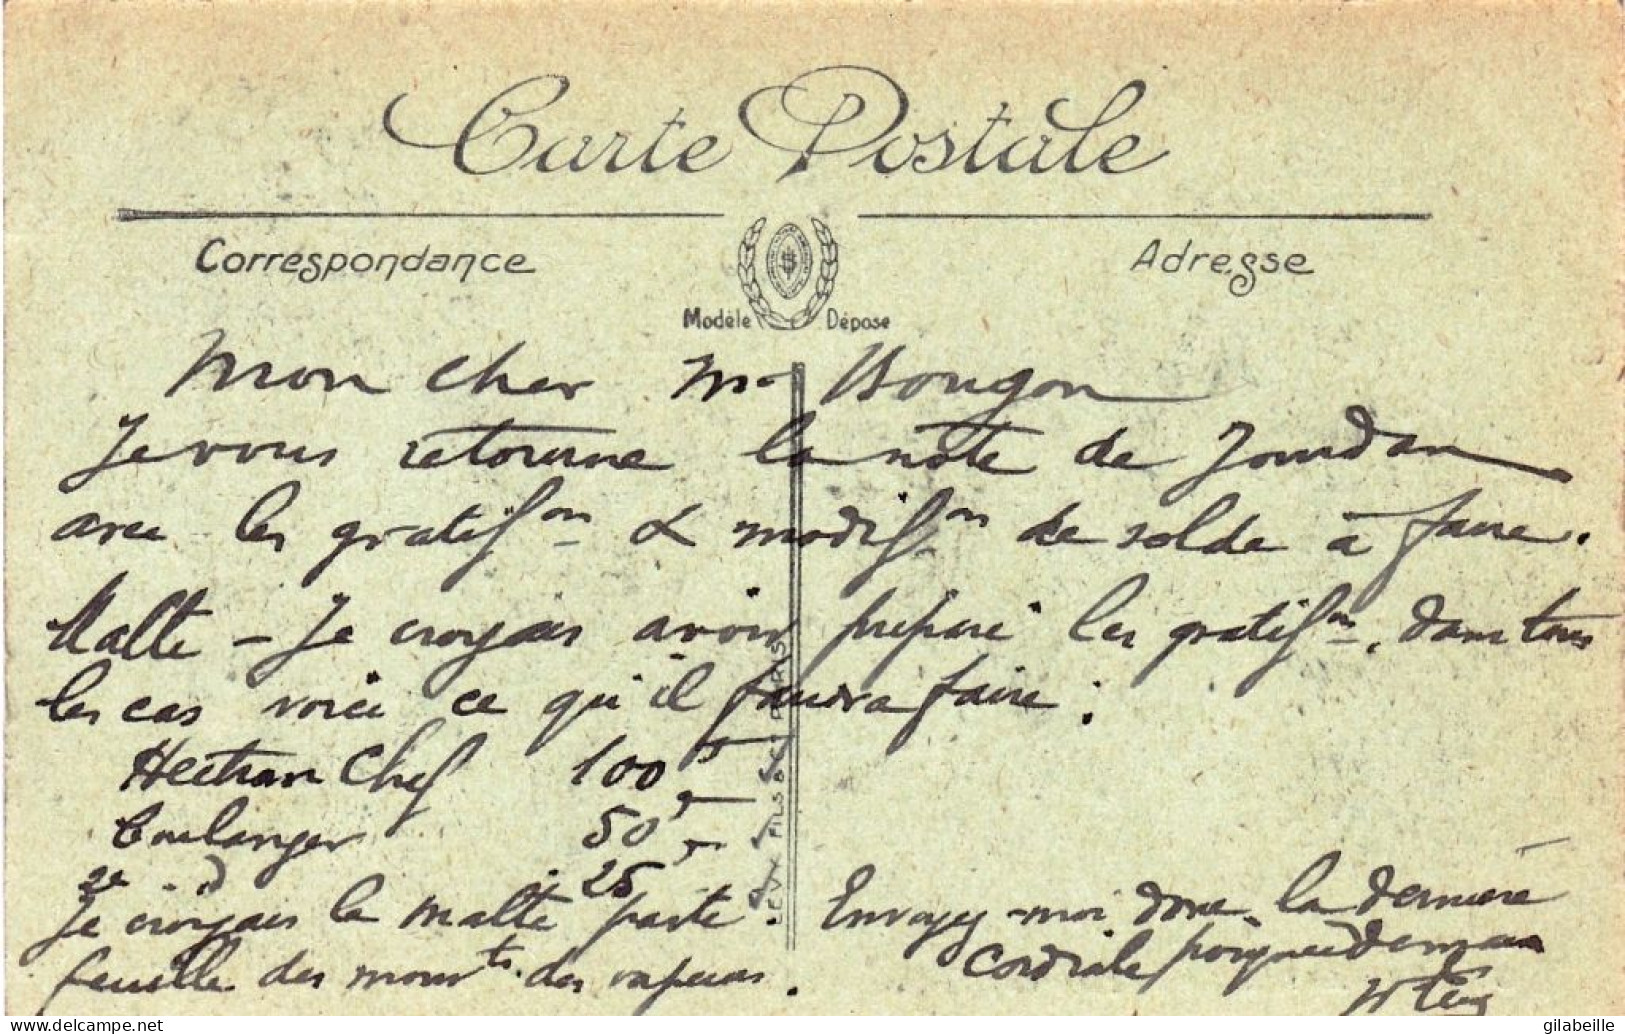 Carte Postale
Correspondance
Adresse
Modèle Déposé
Mon cher Mr Bougon
Je vous retourne la note de Jourdan
avec les gratifon & modifon de solde à faire.
Malte – Je croyais avoir préparé les gratifons, dans tous
les cas voici ce qu'il faudra faire :
Chef 100
Boulanger 50
2e d 25
Je croyais le Malte parti.
Envoyez-moi donc la dernière
feuille des mouvts des vapeurs.
Cordiale poignée de main
LEVY FILS & Cie PARIS
gilabeille